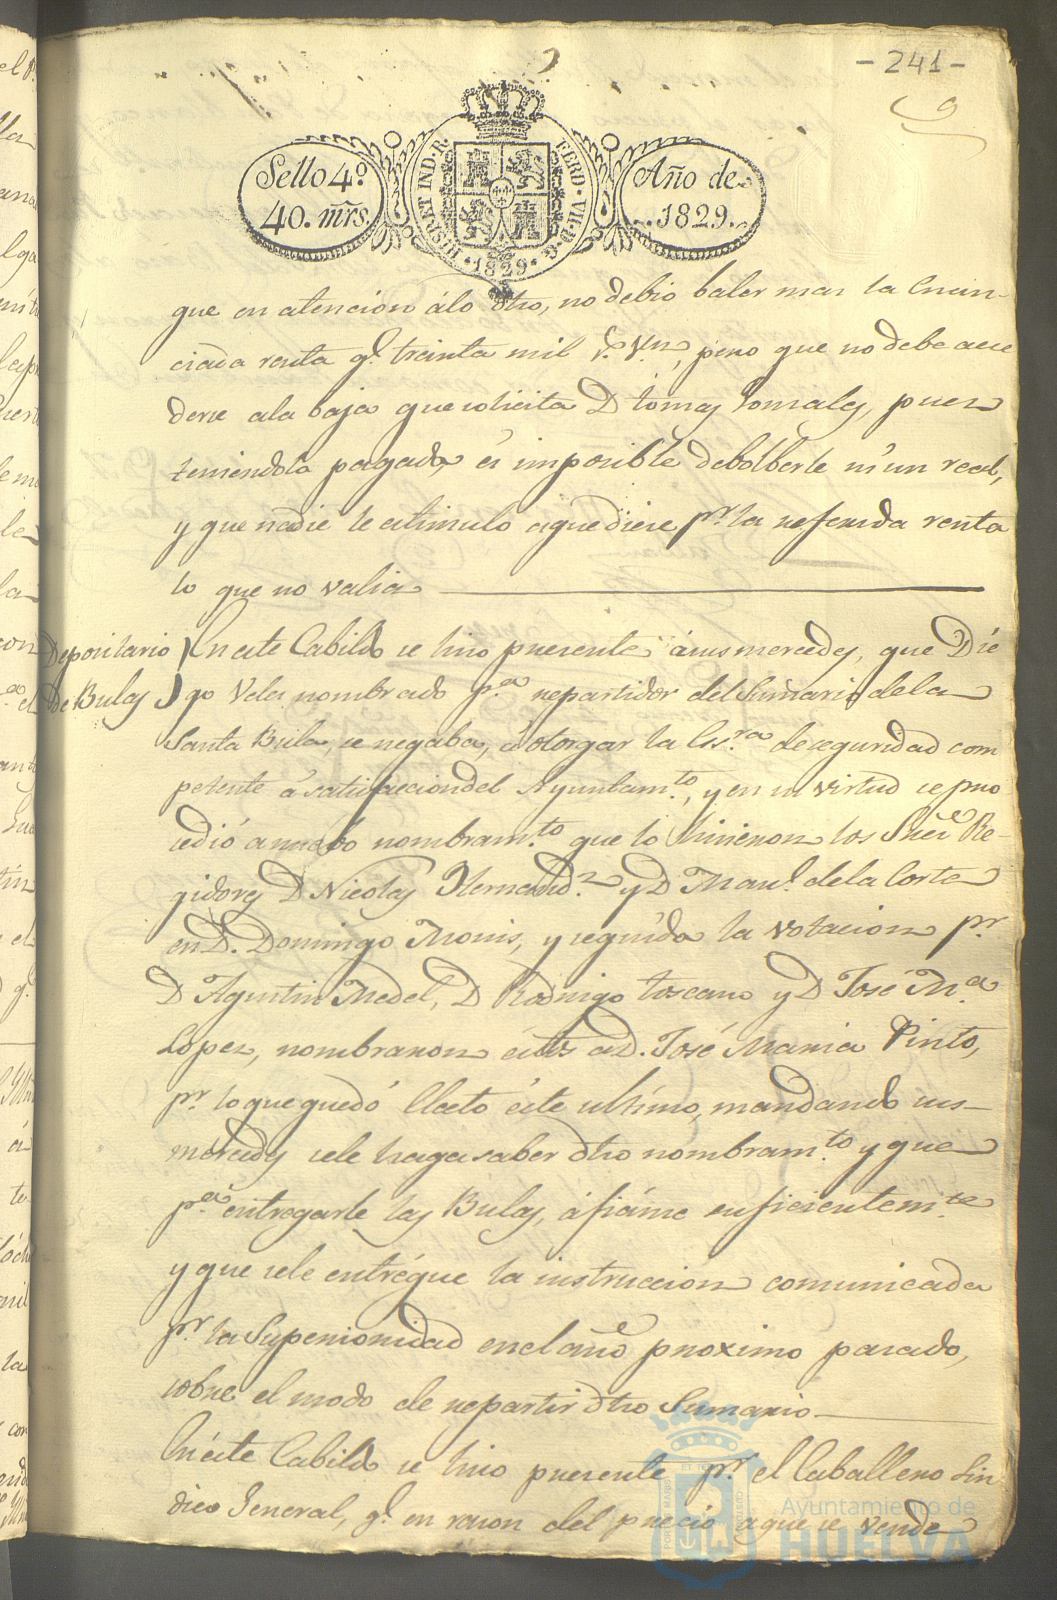 - 241 -
9
Sello 4º
40. mrs.
HISP. ET IND. R. FERD. VII. D. G.
· 1829 ·
Año de
1829.
que en atencion álo dho, no debio baler mas la enun-
ciada renta q.e treinta mil r.s v.n, pero que no debe acce
derse ala baja que solicita D.n tomas Gonzales, pues
teniendola pagada, es imposible debolberle ni un real,
y que nadie le estimulo aque diese p.r la referida renta
lo que no valia
Depositario
de Bulas
En este Cabildo se hizo presente ásus mercedes, que Die
go Vela nombrado p.a repartidor del Sumario dela
Santa Bula, se negaba, á otorgar la Ess.ra deseguridad com
petente á satisfaccion del Ayuntam.to, y en su virtud se pro
cedió anuebo nombram.to que lo hicieron los Sres Re-
gidores D.n Nicolas Hernand.z y D.n Man.l dela Corte
en D.n Domingo Monis, y seguida la votacion p.r
D.n Agustin Medel, D.n Rodrigo toscano y D.n José M.a
Lopez, nombraron éstos a D.n José Maria Pinto,
p.r lo que quedó Electo éste ultimo, mandando sus
mercedes sele haga saber dho nombram.to y que
p.a entregarle las Bulas, áfiánse suficientem.te
y que sele entrégue la instruccion comunicada
p.r la Superioridad en el año proximo pasado,
sobre el modo de repartir dho Sumario
En éste Cabildo se hizo presente p.r el Caballero Sin
dico General, q.e en rason del précio aque se vende
Ayuntamiento de
HUELVA